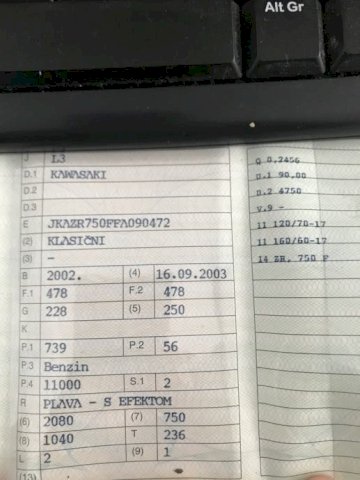 Alt Gr
J L3
D.1 KAWASAKI
D.2
D.3
E JKAZR750FFA090472
(2) KLASIČNI
(3) -
B 2002. (4) 16.09.2003
F.1 478 F.2 478
G 228 (5) 250
K
P.1 739 P.2 56
P.3 Benzin
P.4 11000 S.1 2
R PLAVA - S EFEKTOM
(6) 2080 (7) 750
(8) 1040 T 236
L 2 (9) 1
(13)
Q 0,2456
U.1 90,00
U.2 4750
V.9 -
11 120/70-17
11 160/60-17
14 ZR, 750 F